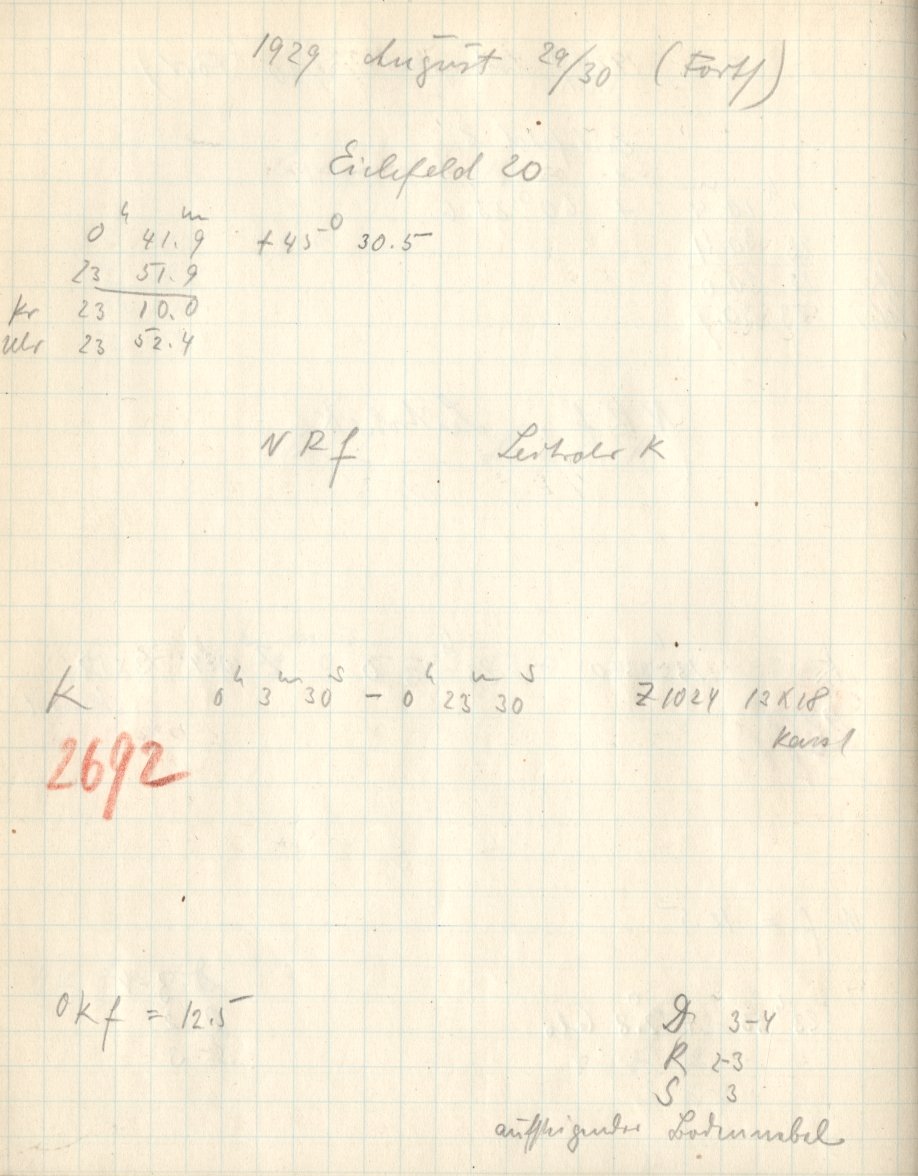 1929 August 29/30 (Forts)
Eichfeld 20
0ʰ 41.ᵐ9 +45⁰ 30.5
23 51.9
Kr 23 10.0
Uhr 23 52.4
N R f Leitrohr K
K 0ʰ 3ᵐ 30ˢ – 0ʰ 23ᵐ 30ˢ Z1024 13x18
2692
OKf = 12.5
D 3-4
R 2-3
S 3
aufsteigender Bodennebel